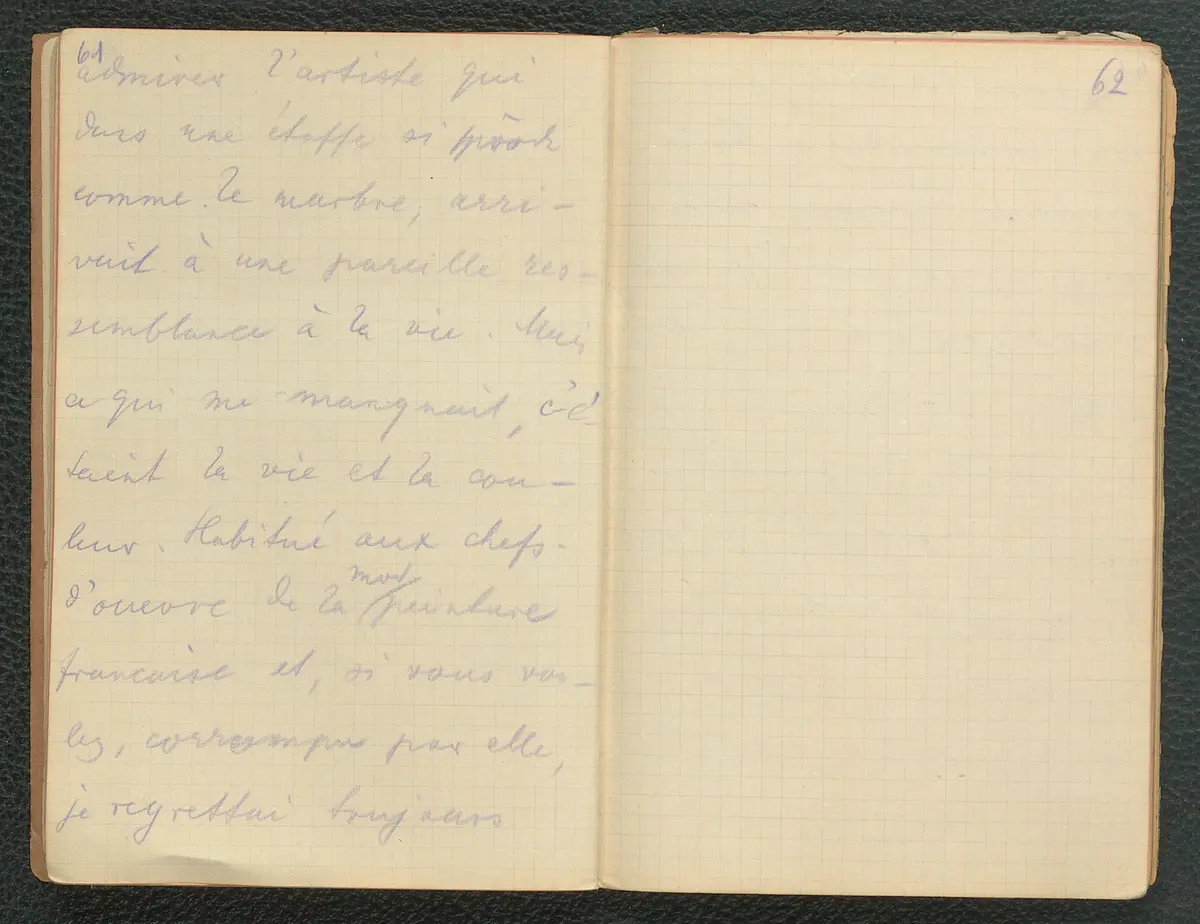 61
admirer l'artiste qui
dans une étoffe si
comme le marbre, arri-
vait à une pareille res-
semblance à la vie. Mais
ce qui me manquait, c'é-
taient la vie et la cou-
leur. Habitué aux chefs-
d'ouevre de la mod peinture
francaise et, si vous vou-
lez, corrompu par elle,
je regrettai toujours
62